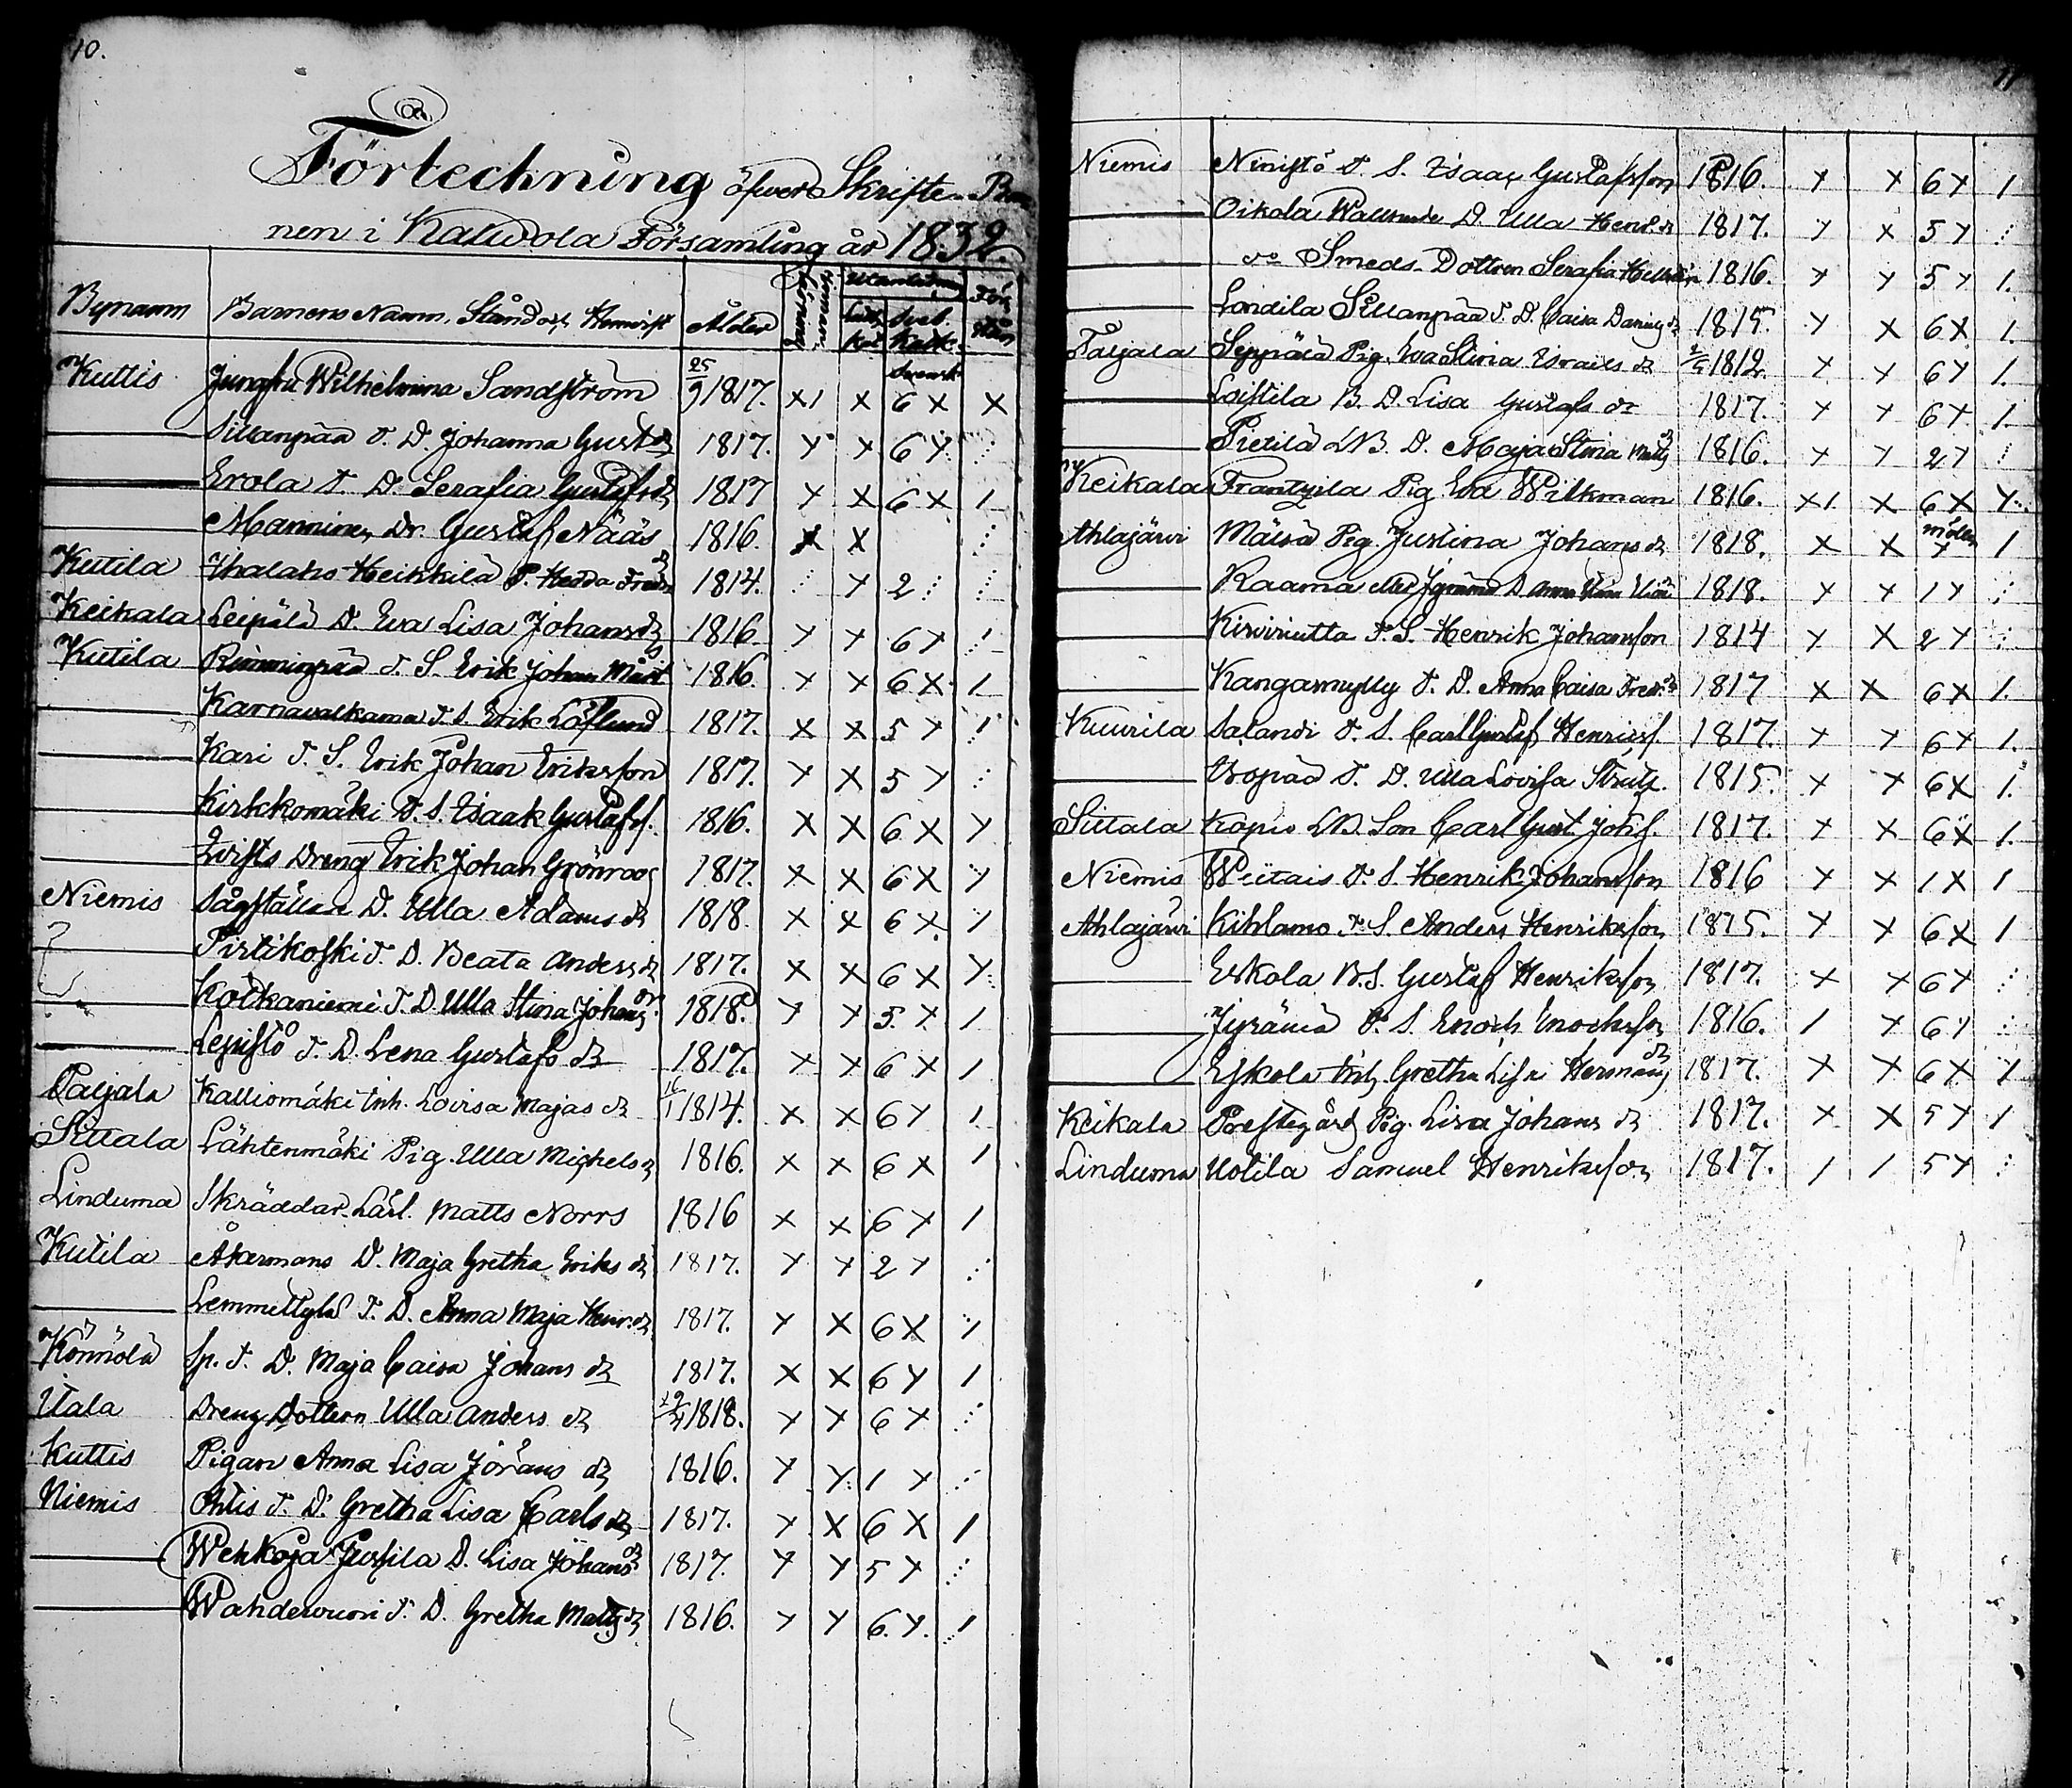 10.
Förteckning öfver Skrifte-Bar
nen i Kalwola Församling år 1832.
Bynamn Barnens Namn, Stånd och Hemvist Ålder Utanläsning Luth. kat. Svebel. Katk. För stån
Kuttis Jungfru Wilhelmina Sandström 25/9 1817. X1 X Svensk 6 X X
Sillanpää T. D. Johanna Gust dr 1817. X X 6 X ⋮
Erola T. D. Serafia Gustafs dr 1817 X X 6 X 1
Manninen Dr. Gustaf Nääs 1816. X X ⋮
Kutila Heikkilä P. Hedda Fredr dr 1814. ⋮ X 2 ⋮ ⋮
Keikala Leipälä D. Eva Lisa Johans dr 1816 X X 6 X 1
Kutila Rimminpää T. S. Erik Johan 1816. X X 6 X 1
Karnavalkama T. S. Erik Löflund 1817. X X 5 X 1
Kari T. S. Erik Johan Eriksson 1817. X X 5 X ⋮
Kirkkomäki T. S. Isaak Gustafss. 1816. X X 6 X X
Dreng Erik Johan Grönroos 1817. X X 6 X X
Niemis Sågställan D. Ulla Adams dr 1818. X X 6 X. 1
Pirttikoski T. D. Beata Anders dr 1817. X X 6 X X
Kotkaniemi T. D. Ulla Stina Johans dr 1818. X X 5. X. 1
Lepistö T. D. Lena Gustafs dr 1817. X X 6 X 1
Taljala Kalliomäki Inh. Lovisa Majas dr 1814. X X 6 X 1
Sittala Lähtenmäki Pig. Ulla Michels dr 1816. X X 6 X 1
Linduma Skräddar Lärl. Matts Norrs 1816 X X 6 X 1
Kutila Åkermans D. Maja Gretha Eriks dr 1817. X X 2 X ⋮
Lemmettylä T. D. Anna Maja Henr. dr 1817. X X 6 X 1
Könnölä Sp. T. D. Maja Caisa Johans dr 1817. X X 6 X 1
Itala Dreng Dottern Ulla Anders dr 1818. X X 6 X ⋮
Kuttis Pigan Anna Lisa Jörans dr 1816. X X 1 X ⋮
Niemis Ohtis T. D. Gretha Lisa Carls dr 1817. X X 6 X 1
Wehkoja Jussila D. Lisa Johans dr 1817. X X 5 X ⋮
Wahdervuori T. D. Gretha Matts dr 1816. X X 6. X. 1
11
Niemis Ninistö T. S. Isaac Gustafsson 1816. X X 6 X 1
Oikola D. Ulla Henr. dr 1817. X X 5 X ⋮
do Smeds-Dottren Serafia 1816. X X 5 X 1.
Landila Sillanpää T. D. Caisa Daniels dr 1815. X X 6 X 1.
Taljala Seppälä Pig. Eva Stina Israels dr 1812. X X 6 X 1.
Loistila B. D. Lisa Gustafs dr 1817. X X 6 X. 1.
Pietilä LB. D. Maja Stina Matts dr 1816. X X 2 X ⋮
Keikala Frantzila Pig Eva Wilkman 1816. X1. X 6 X X
Ahlajärvi Mäisä Pig. Justina Johans dr 1818. X X X 1
Raama eller Jyrämä D. Anna 1818. X X 1 X ⋮
Kirvirintta T. S. Henrik Johansson 1814 X X 2 X ⋮
Kangasmylly T. D. Anna Caisa Fredr. dr 1817 X X 6 X 1.
Kuurila Salandi T. S. Carl Gustaf Henricss. 1817. X X 6 X 1.
Isopää T. D. Ulla Lovisa 1815. X X 6 X 1.
Sittala Kopio LB. Son Carl Gust. Johs. 1817. X X 6 X 1.
Niemis Wiitais T. S. Henrik Johansson 1816 X X 1 X 1
Ahlajärvi Kihlamo T. S. Anders Henriksson 1815. X X 6 X 1
Eskola B. S. Gustaf Henriksson 1817. X X 6 X ⋮
Jyrämä T. S. Enoch Enochsson 1816. 1 X 6 X ⋮
Eskola Inh. Gretha Lisa Hermans dr 1817. X X 6 X X
Keikala Prestegårds Pig. Lisa Johans dr 1817. X X 5 X 1
Linduma Uotila Samuel Henriksson 1817. 1 1 5 X ⋮